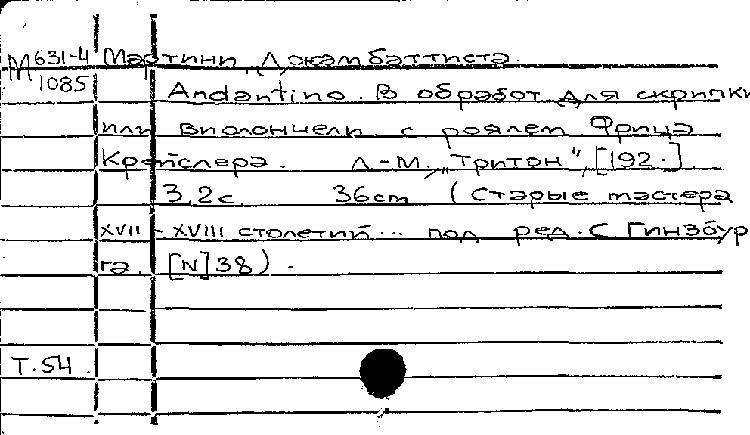 М 631-4 Мартини, Джамбаттиста.
1085
Andantino. В обработ. для скрипки
или виолончели с роялем Фрица
Крейслера. Л-М., "Тритон", [192.]
3,2с. 36cm (Старые мастера
XVII - XVIII столетий... под ред. С Гинзбур
га. [N] 38).
Т.54.